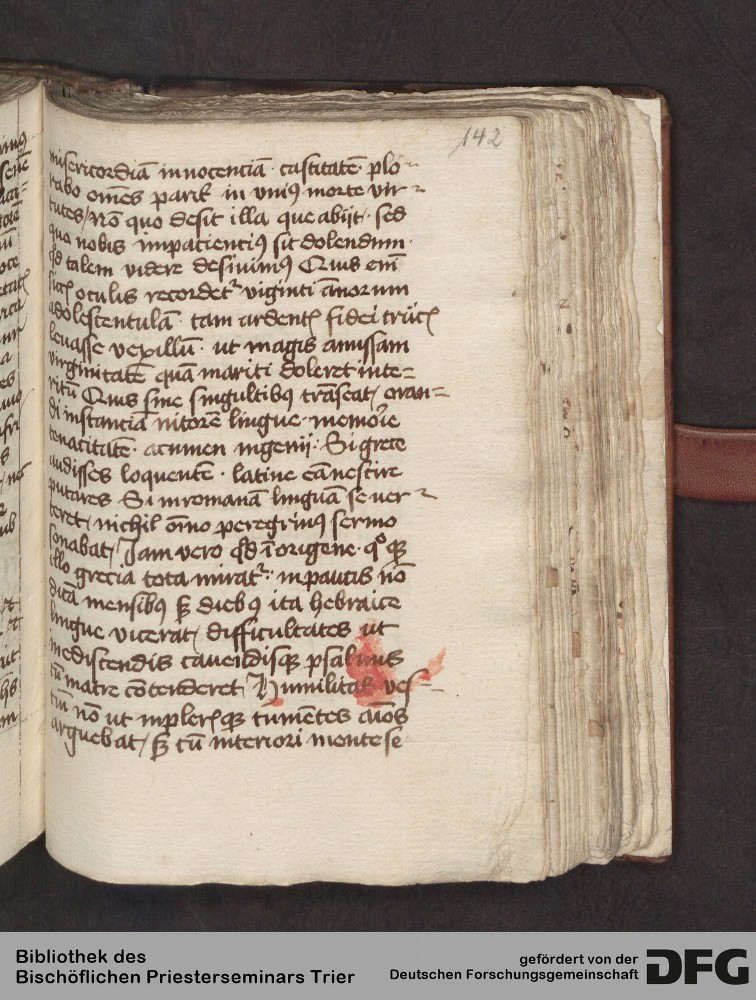 142
misericordiā innocenciā castitatē plo-
rabo om̄es parit̄ in vniꝰ morte vir-
tutes / Nō quo desit illa que abijt · sed
quo nobis impacienciꝰ sit dolendum ·
qd̄ talem videre desiuimꝰ Quis em̄
siccꝭ oculis recordetᷣ viginti ānorum
adolescentulā · tam ardentꝭ fidei
leuasse vexillū · ut magis amissam
virginitatē quā mariti doleret inte=
ritū Quis sine singultibꝯ trāseat / oran=
di instanciā nitorē lingue · memoīe
tenacitatē · acumen ingenij : Si grece
audisses loquentē · latine eā nescire
putares Si in romanā linguā se ver-
teret / nichil om̄o peregrinꝰ sermo
sonabat / Jam vero qd̄ ī origene · qͦqꝫ
illo grecia tota miratᷣ · in paucis nō
dicā mensibꝯ sꝫ diebꝯ ita hebraice
lingue vicerat / difficultates ut
in discendis canendisqꝫ psalmis
cū matre cōtenderet / Humilitas ves=
tiū nō ut in plerisqꝫ tumētes aīos
arguebat / sꝫ cū interiori mente se
Bibliothek des
Bischöflichen Priesterseminars Trier
gefördert von der
Deutschen Forschungsgemeinschaft
DFG